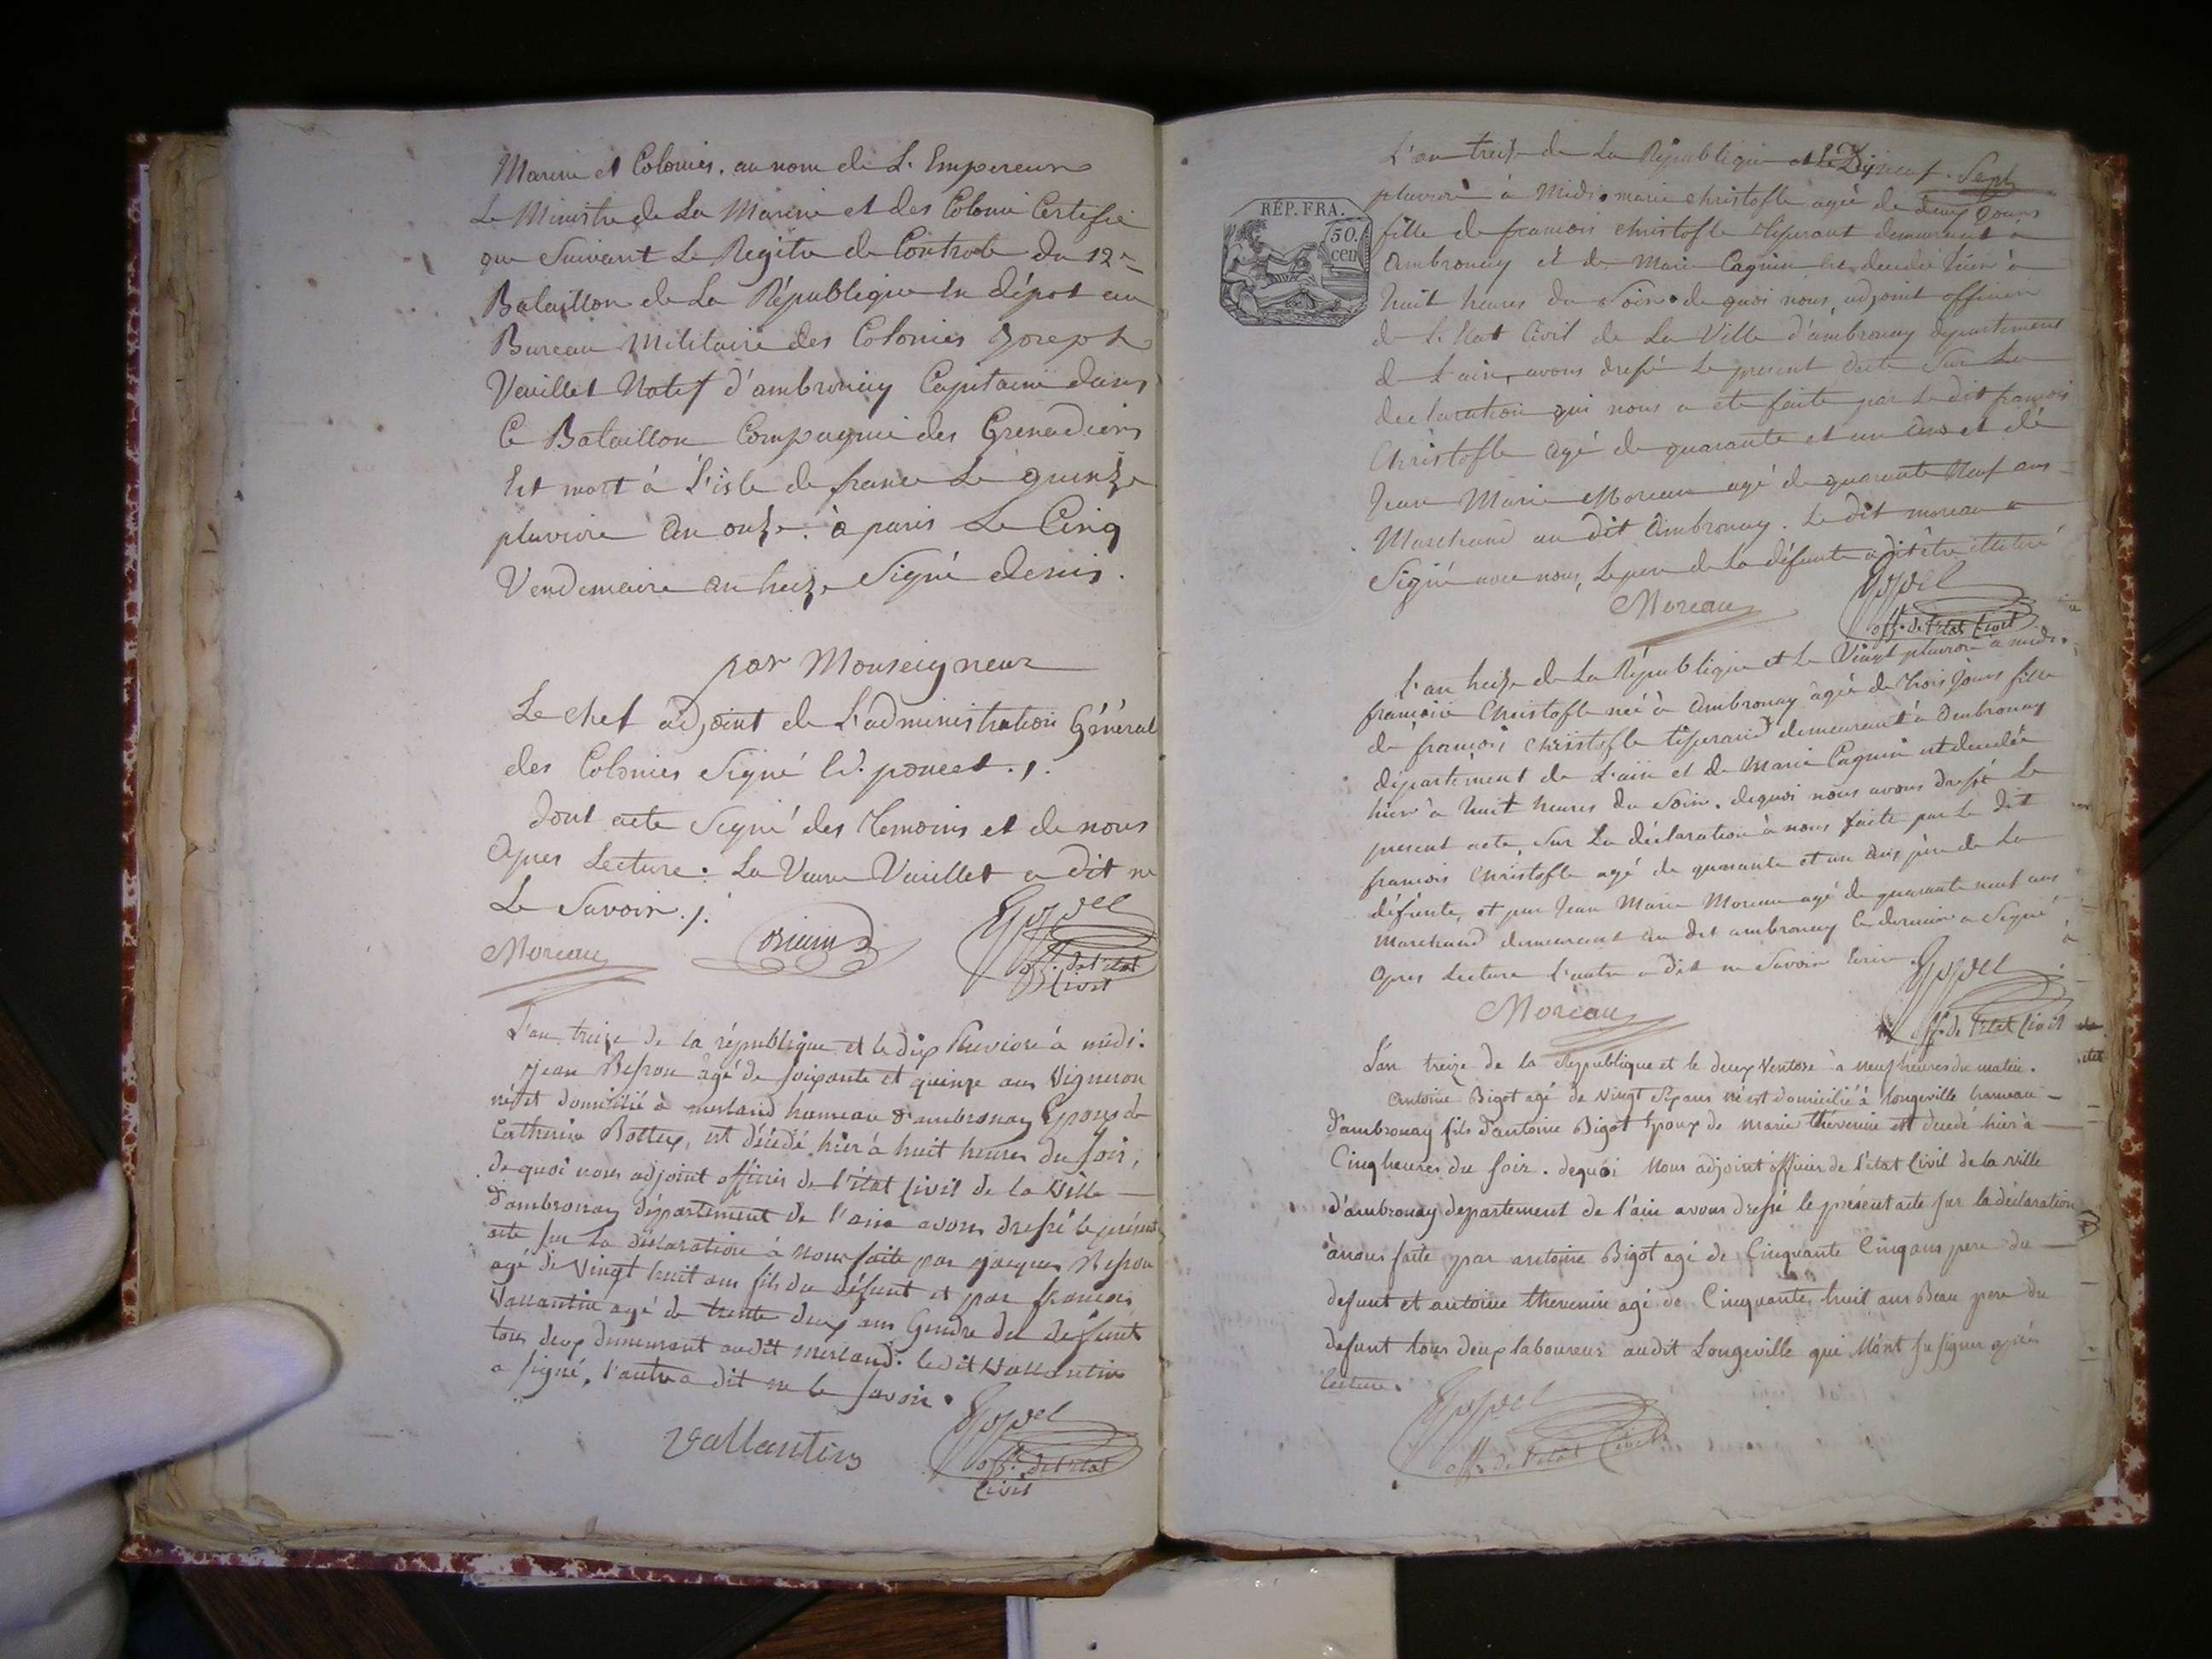 Marine et Colonies. au nom de L'Empereur
Le Ministre de La Marine et des Colonie Certifie
que Suivant Le Registre de Controle du 12e
Bataillon de La République en dépot au
Bureau Militaire des Colonies Joseph
Vuillet Natif d'ambronay Capitaine dans
Ce Bataillon Compagnie des Grenadiers
Est mort à L'isle de france Le quinze
pluviose an onze. à paris Le Cinq
Vendemiaire an treize Signé denis.
par Monseigneur
Le chef adjoint de L'administration Général
des Colonies Signé poncet.
dont acte Signé des temoins et de nous
Apres Lecture. La Veuve Vuillet a dit ne
Le Savoir.
Moreau
off. de l'etat
Civil
L'an treize de la république et le dix Pluviose à midi.
jean Besson âgé de soixante et quinze ans Vigneron
né et domicilié à merland hameau d'ambronay Epoux de
Catherine Bottex, est décédé hier à huit heures du soir,
de quoi nous adjoint officier de l'état Civil de la Ville
d'ambronay département de l'ain avons dressé le présent
acte sur la déclaration à nous faite par jacques Besson
agé de Vingt huit ans fils du défunt et par francois
Vallantin agé de trente deux ans Gendre du défunt
tous deux demeurant audit merland. ledit Vallantin
a signé, l'autre a dit ne le savoir.
Vallantin
off. de l'etat
Civil
L'an treize de La République et Le Dixneuf
pluviose à Midi. marie christofle agée de deux Jours
RÉP. FRA.
50.
cen
fille de francois christofle tisserant demeurant a
Ambronay et de Marie Cagnin est decedée hier à
huit heures du Soir. de quoi nous adjoint officier
de L'Etat Civil de La Ville d'ambronay departement
de L'ain, avons dressé Le present acte Sur La
declaration qui nous a ete faite par Le dit francois
Christofle agé de quarante et un ans et de
Jean Marie Moreau agé de quarante Neuf ans
Marchand au dit Ambronay. Le dit moreau a
Signé avec nous, Le pere de La défunte a dit être illitéré
Moreau
off. de l'etat Civil
L'an treize de La République et Le Vingt pluviose à midi.
françoise Christofle née à Ambronay agée de trois Jours fille
de françois christofle tisserand demeurant à Ambronay
département de L'ain et de Marie Cagnin est decedée
hier à huit heures du Soir. dequoi nous avons dressé Le
present acte, Sur La déclaration à nous faite par Le dit
francois Christofle agé de quarante et un ans père de La
défunte, et par Jean Marie Moreau agé de quarante neuf ans
Marchand demeurant au dit ambronay le dernier a Signé
Apres Lecture L'autre a dit ne Savoir Ecrire.
Moreau
off. de l'etat Civil
L'an treize de la République et le deux Ventose à neuf heures du matin.
Antoine Bigot agé de vingt Sept ans né et domicilié à longeville hameau
d'ambronay fils d'antoine Bigot Epoux de marie thévenin est decedé hier à
Cinq heures du soir. dequoi Nous adjoint officier de l'etat Civil de la ville
d'ambronay departement de l'ain avons dressé le présent acte sur la déclaration
à nous faite par antoine Bigot agé de Cinquante Cinq ans pere du
defunt et antoine thevenin agé de Cinquante huit ans Beau pere du
defunt tous deux laboureurs audit Longeville qui n'ont su signer après
lecture.
off. de l'etat Civil